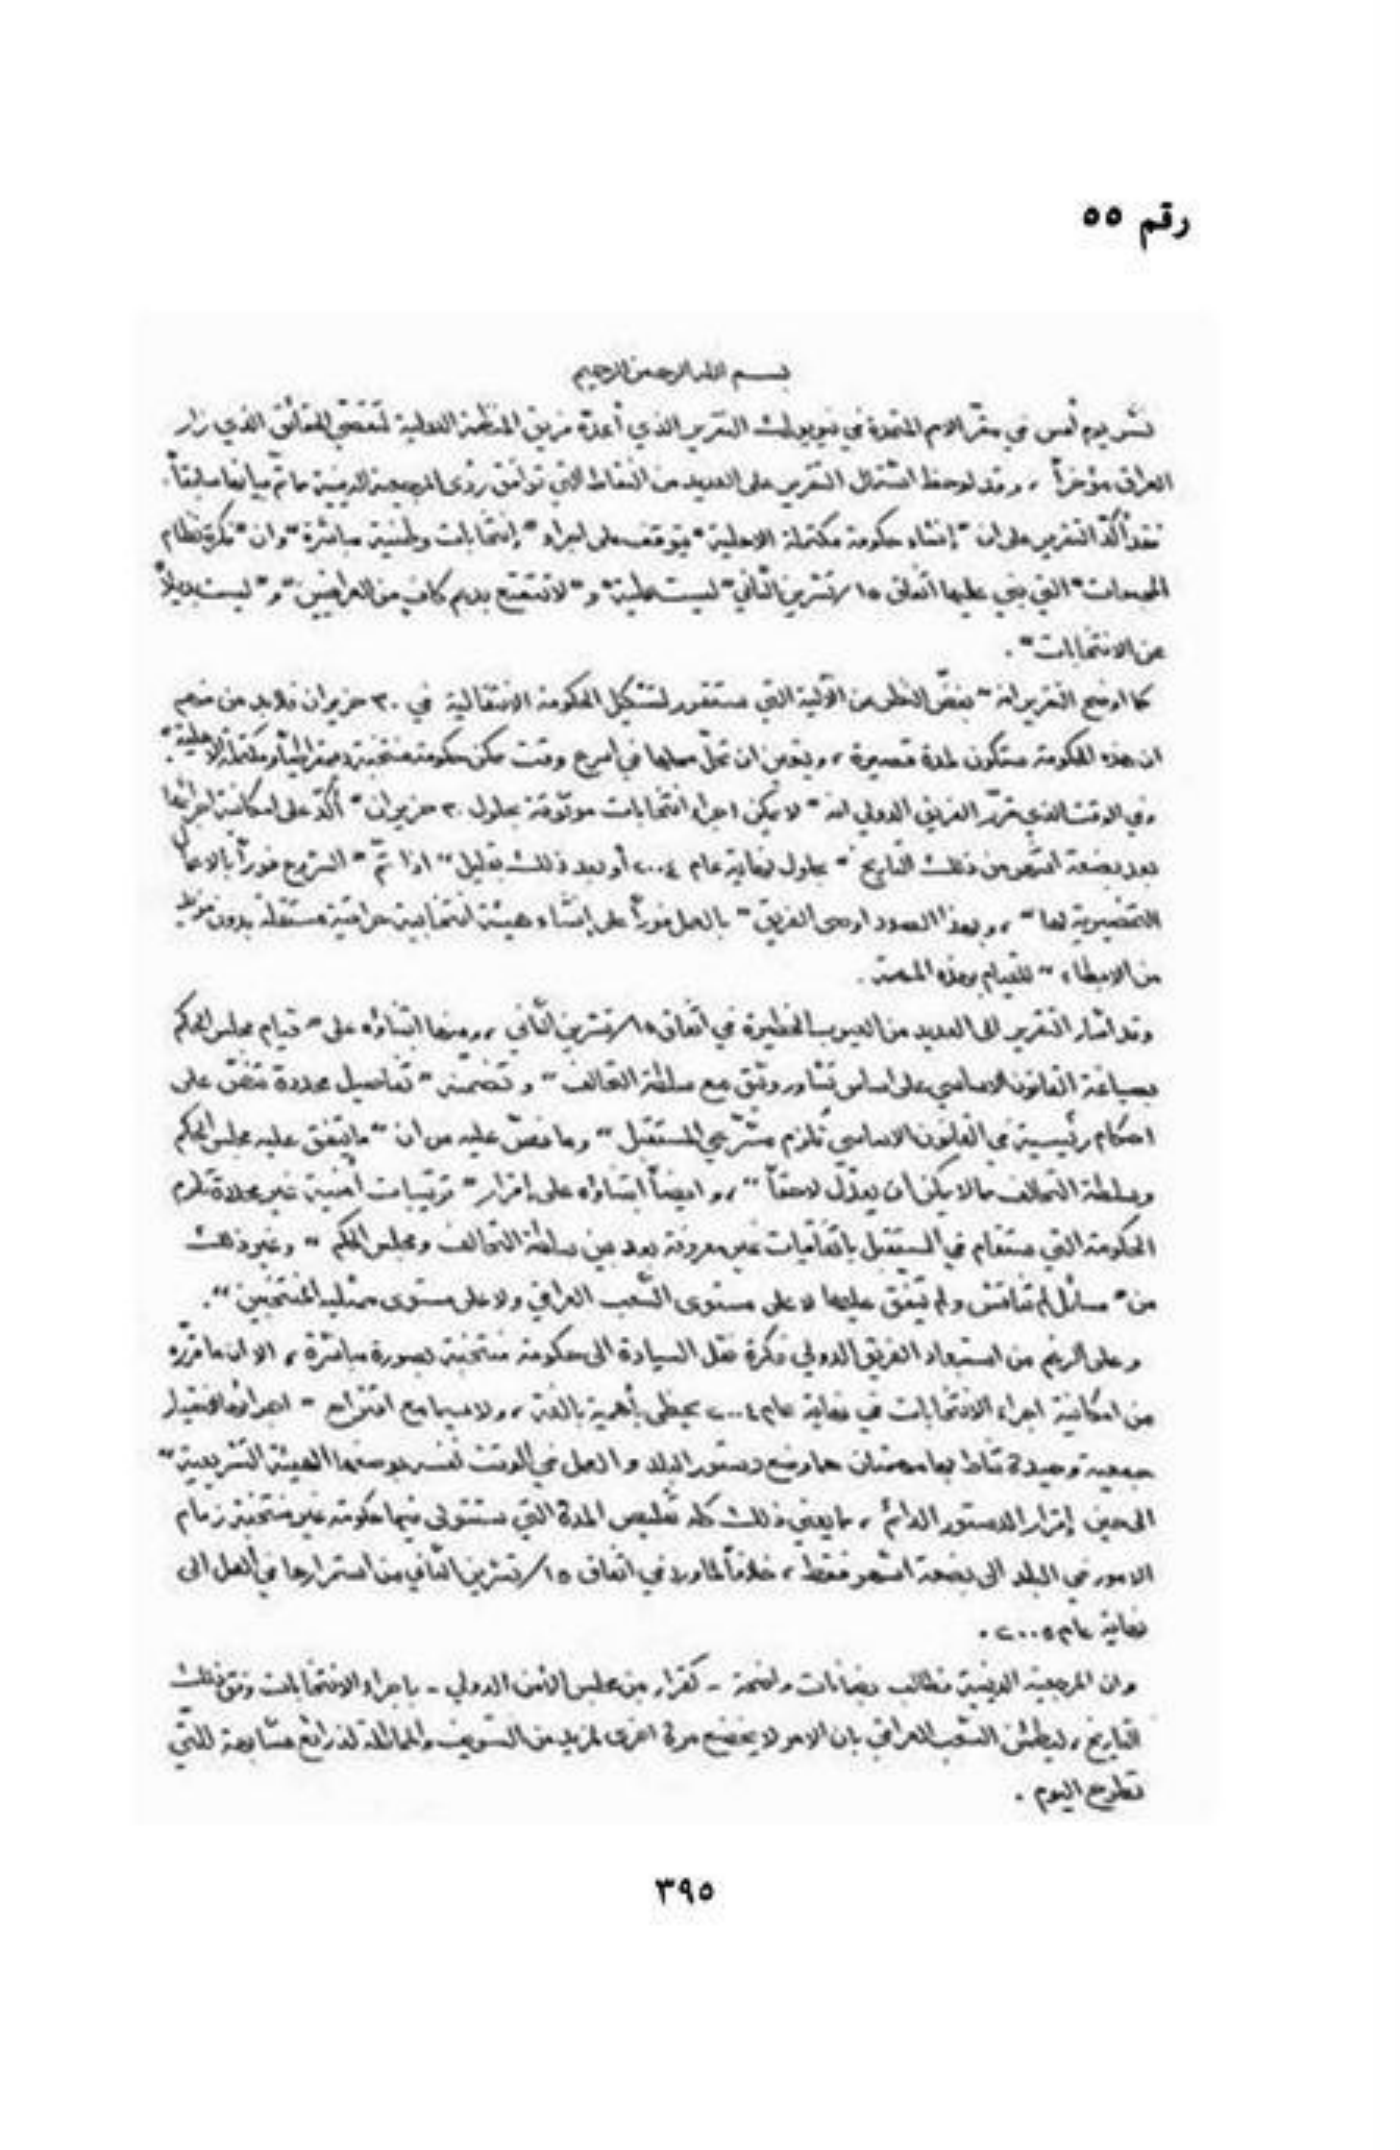 رقم ٥٥
بسم الله الرحمن الرحيم
نشر يوم أمس في مقرّ الامم المتحدة في نيويورك التقرير الذي أعدّه فريق المنظمة الدولية لتقصّي الحقائق الذي زار
العراق مؤخراً ، وقد لوحظ اشتمال التقرير على العديد من النقاط التي توافق رؤى المرجعية الدينية مما تمّ بيانها سابقاً.
فقد أكّد التقرير على ان "إنشاء حكومة مكتملة الاهلية" يتوقف على اجراء "إنتخابات وطنية مباشرة" وان "فكرة نظام
المجمعات" التي بني عليها اتفاق ١٥/تشرين الثاني "ليست عملية" و"لا تتمتع بدعم كافٍ من العراقيين" و"ليست بديلاً
عن الانتخابات" .
كما اوضح التقرير انه "بغضّ النظر عن الآلية التي ستتقرر لتشكيل الحكومة الانتقالية في ٣٠ حزيران فلابد من فهم
ان هذه الحكومة ستكون لمدة قصيرة ، ويتعين ان تحلّ محلها في اسرع وقت ممكن حكومة منتخبة ديمقراطياً ومكتملة الاهلية".
وفي الوقت الذي قرّر الفريق الدولي انه "لا يمكن اجراء انتخابات موثوقة بحلول ٣٠ حزيران" أكّد على امكانية اجرائها
بعد بضعة اشهر من ذلك التاريخ "بحلول نهاية عام ٢٠٠٤ أو بعد ذلك بقليل" اذا تمّ "الشروع فوراً بالاعمال
التحضيرية لها" ، وبهذا الصدد اوصى الفريق "بالعمل فوراً على إنشاء هيئة انتخابية عراقية مستقلة بدون مزيد
من الابطاء" للقيام بهذه المهمة .
وقد اشار التقرير الى العديد من العيوب الخطيرة في اتفاق ١٥/تشرين الثاني ، ومنها ابتناؤه على "قيام مجلس الحكم
بصياغة القانون الاساسي على اساس تشاور وثيق مع سلطة التحالف" وتضمّنه "تفاصيل محددة تنصّ على
احكام رئيسية في القانون الاساسي تُلزم مشرّعي المستقبل" وما نصّ عليه من ان "ما يتفق عليه مجلس الحكم
وسلطة التحالف مما لا يمكن أن يعدّل لاحقاً" ، وايضاً ابتناؤه على إقرار "ترتيبات أمنية غير محددة تلزم
الحكومة التي ستقام في المستقبل باتفاقيات غير معروفة بعد بين سلطة التحالف ومجلس الحكم" وغير ذلك
من "مسائل لم تناقش ولم يتفق عليها لا على مستوى الشعب العراقي ولا على مستوى ممثليه المنتخبين".
وعلى الرغم من استبعاد الفريق الدولي فكرة نقل السيادة الى حكومة منتخبة بصورة مباشرة ، الا ان ما قرّره
من امكانية اجراء الانتخابات في نهاية عام ٢٠٠٤ يحظى بأهمية بالغة ، ولاسيما مع اقتراح "اجرائها لاختيار
جمعية وحيدة تناط بها مهمتان هما وضع دستور البلد والعمل في الوقت نفسه بوصفها الهيئة التشريعية"
الى حين إقرار الدستور الدائم ، مما يعني ذلك كله تقليص المدة التي ستتولى فيها حكومة غير منتخبة زمام
الامور في البلد الى بضعة اشهر فقط ، خلافاً لما ورد في اتفاق ١٥/تشرين الثاني من استمرارها في العمل الى
نهاية عام ٢٠٠٥ .
وان المرجعية الدينية تطالب بضمانات واضحة - كقرار من مجلس الأمن الدولي - باجراء الانتخابات وفق ذلك
التاريخ ، ليطمئن الشعب العراقي بان الامر لا يخضع مرة اخرى لمزيد من التسويف والمماطلة لذرائع مشابهة للتي
تطرح اليوم .
٣٩٥